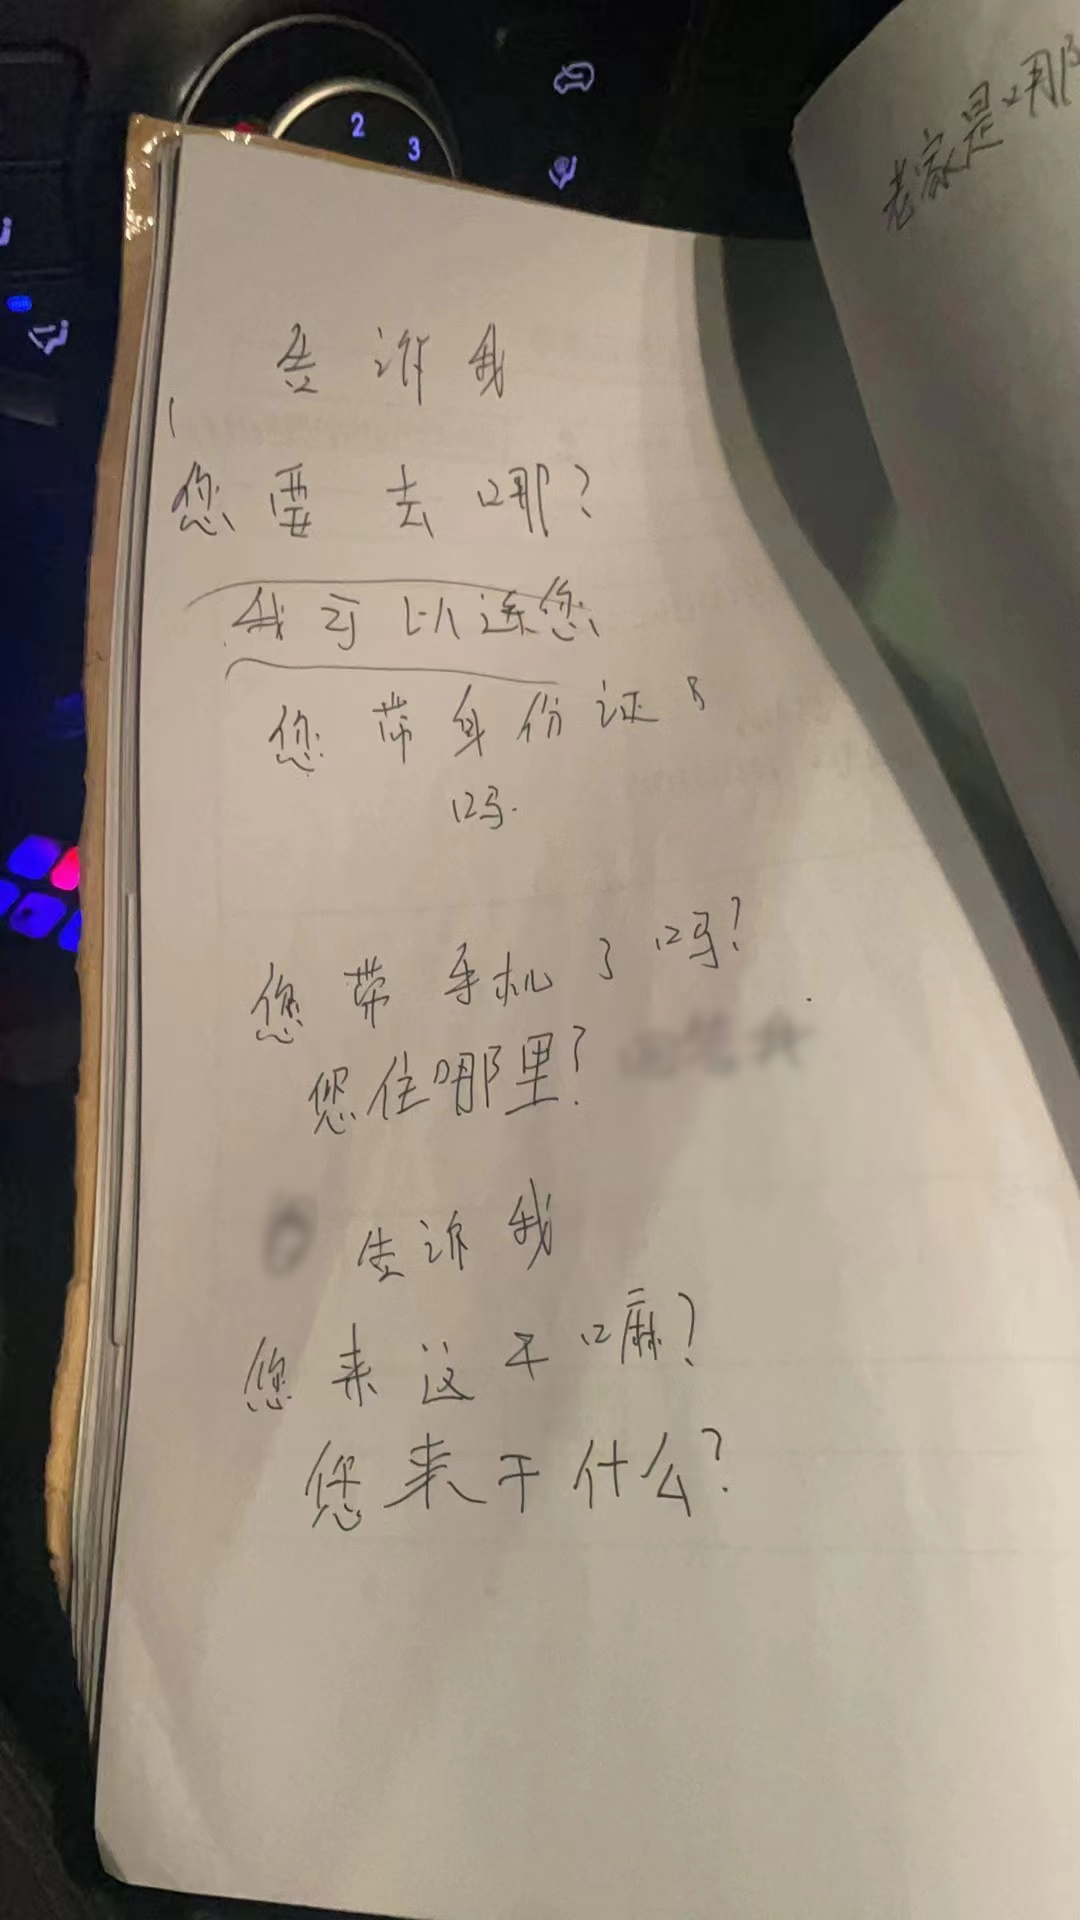 2
3
老家是哪
告诉我
您要去哪?
我可以送您
您带身份证
吗.
您带手机了吗?
您住哪里?
告诉我
您来这干嘛?
您来干什么?